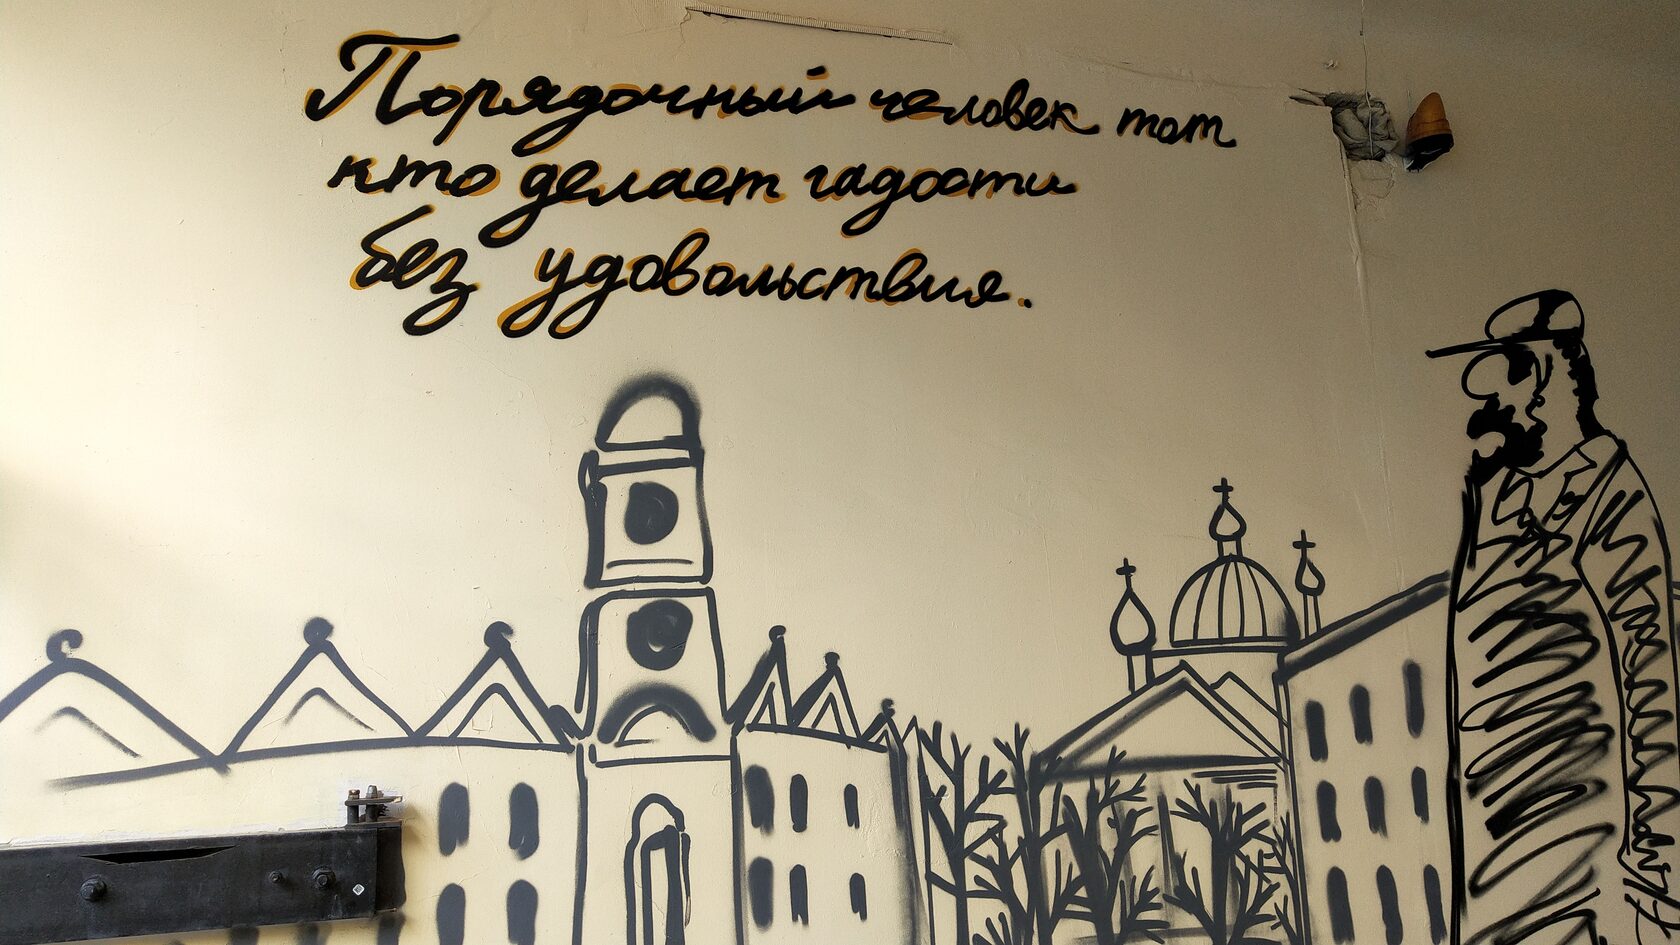 Порядочный человек тот
кто делает гадости
без удовольствия.